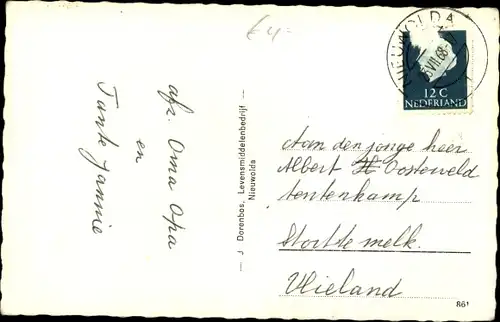 64-
NIEUWOLDA
VII.68
12 C
NEDERLAND
afz Oma Opa
en
Tante Jannie
— J. Dorenbos, Levensmiddelenbedrijf —
Nieuwolda
Aan den jonge heer
Albert H Oosterveld
tentenkamp
Stortemelk.
Vlieland
861